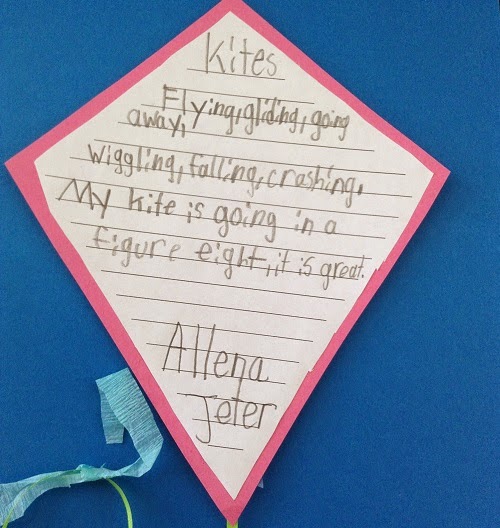 Kites
Flying, gliding, going
away,
Wiggling, falling, crashing,
My kite is going in a
figure eight, it is great.
Allena
Jeter